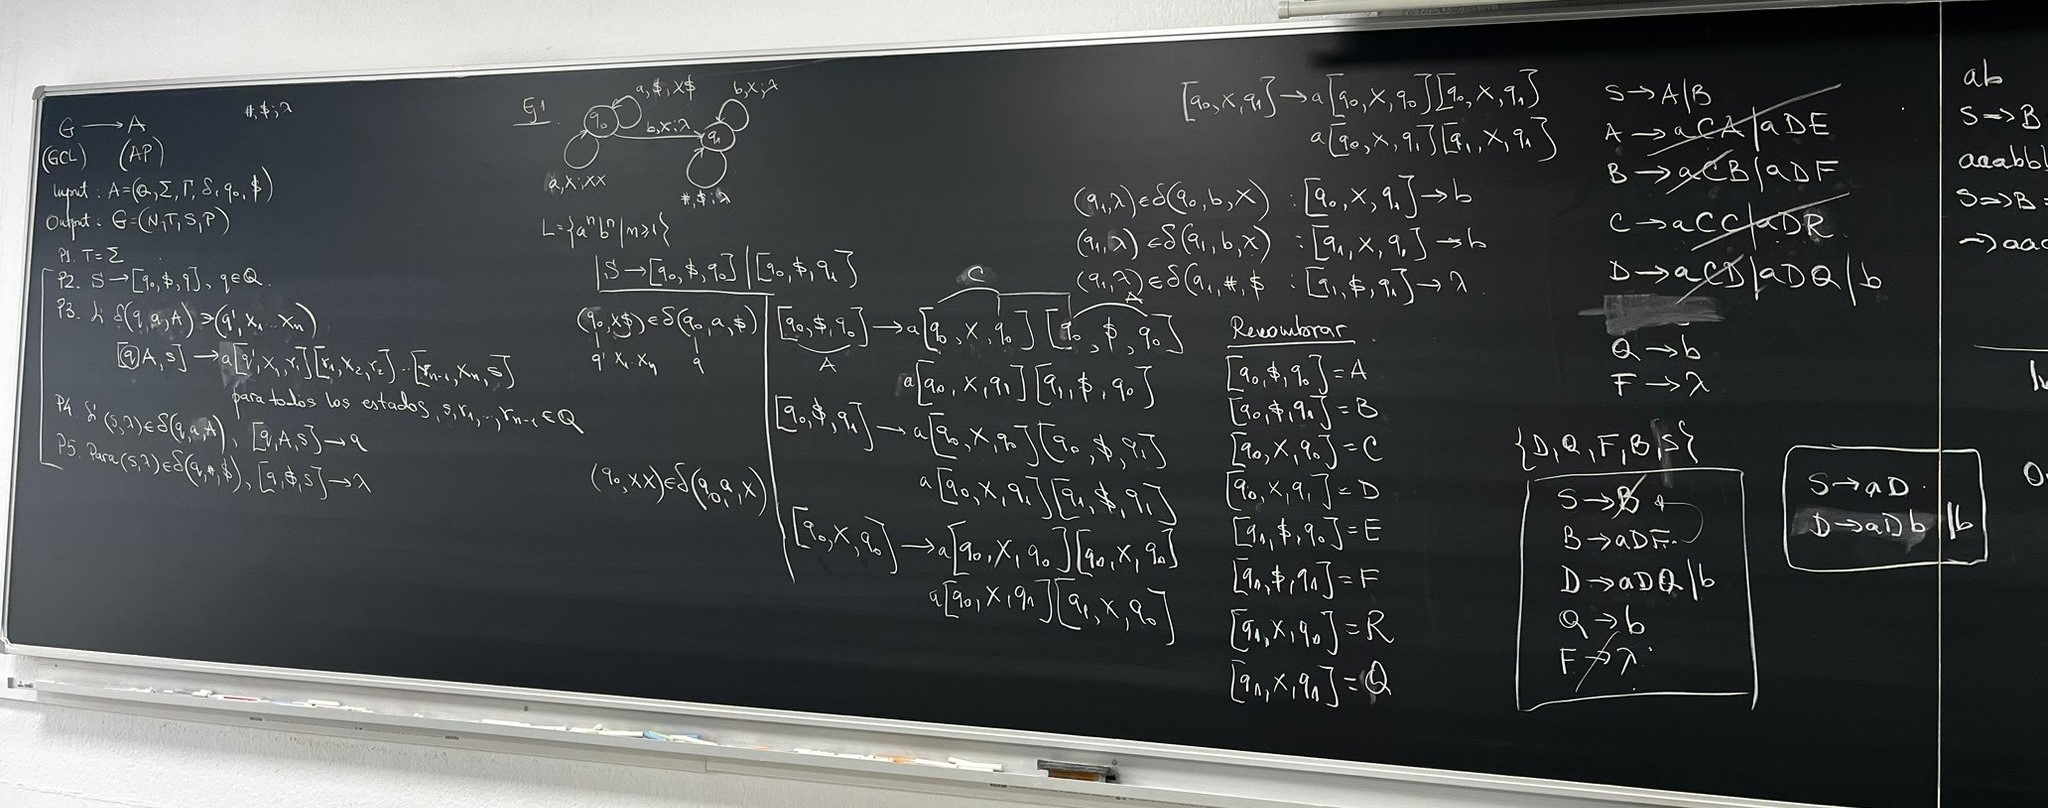 G → A
(GCL) (AP)
#,$;λ
Input: A=(Q,Σ,Γ,δ,q₀,$)
Output: G=(N,T,S,P)
P1. T=Σ
P2. S→[q₀,$,q], q∈Q.
P3. Si δ(q,a,A)∋(q',X₁...Xₙ)
[q,A,s]→a[q',X₁,r₁][r₁,X₂,r₂]...[rₙ₋₁,Xₙ,s]
para todos los estados, s,r₁,...,rₙ₋₁∈Q
P4. Si (s,λ)∈δ(q,a,A), [q,A,s]→a
P5. Para (s,λ)∈δ(q,#,$), [q,$,s]→λ
Ej
a,$;X$
b,x;λ
q₀
b,x;λ
q₁
a,x;xx
#,$;λ
L={aⁿbⁿ|n≥1}
S→[q₀,$,q₀]|[q₀,$,q₁]
(q₀,X$)∈δ(q₀,a,$)
q' X₁..Xₙ q
[q₀,$,q₀]→a[q₀,X,q₀][q₀,$,q₀]
A C A
a[q₀,X,q₁][q₁,$,q₀]
[q₀,$,q₁]→a[q₀,X,q₀][q₀,$,q₁]
a[q₀,X,q₁][q₁,$,q₁]
(q₀,XX)∈δ(q₀,a,X)
[q₀,X,q₀]→a[q₀,X,q₀][q₀,X,q₀]
a[q₀,X,q₁][q₁,X,q₀]
[q₀,X,q₁]→a[q₀,X,q₀][q₀,X,q₁]
a[q₀,X,q₁][q₁,X,q₁]
(q₁,λ)∈δ(q₀,b,X) : [q₀,X,q₁]→b
(q₁,λ)∈δ(q₁,b,X) : [q₁,X,q₁]→b
(q₁,λ)∈δ(q₁,#,$ : [q₁,$,q₁]→λ
Renombrar
[q₀,$,q₀]=A
[q₀,$,q₁]=B
[q₀,X,q₀]=C
[q₀,X,q₁]=D
[q₁,$,q₀]=E
[q₁,$,q₁]=F
[q₁,X,q₀]=R
[q₁,X,q₁]=Q
S→A|B
A→aCA|aDE
B→aCB|aDF
C→aCC|aDR
D→aCD|aDQ|b
Q→b
F→λ
{D,Q,F,B,S}
S→B
B→aDF
D→aDQ|b
Q→b
F→λ
S→aD
D→aDb|b
ab
S⇒B
aaabb
S⇒B